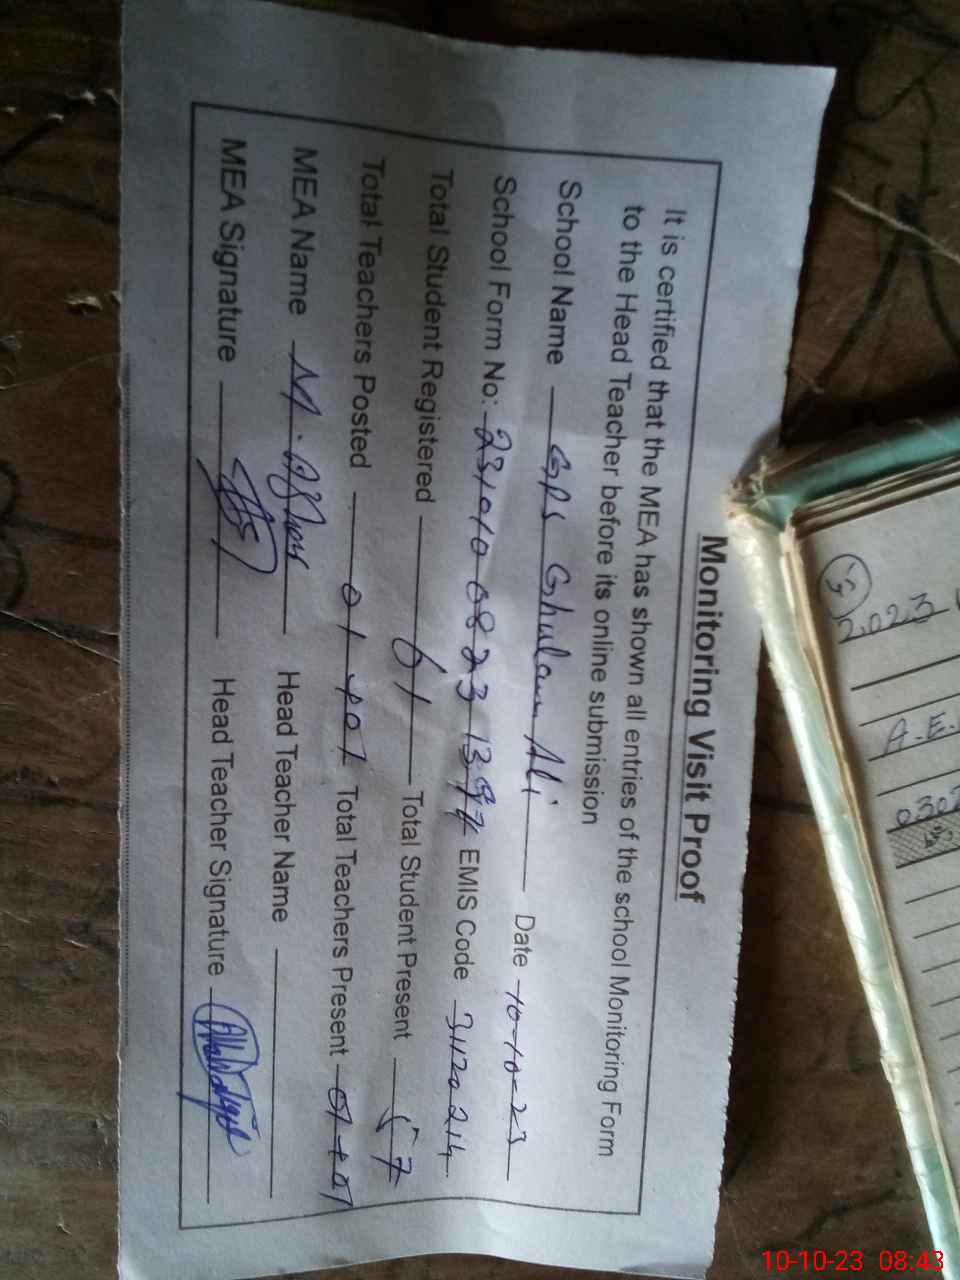 Monitoring Visit Proof
It is certified that the MEA has shown all entries of the school Monitoring Form
to the Head Teacher before its online submission
School Name GPS Ghulam Ali Date 10-10-23
School Form No: EMIS Code 31120214
Total Student Registered 61 Total Student Present 57
Total Teachers Posted 01+01 Total Teachers Present 01+01
MEA Name M. Head Teacher Name
MEA Signature Head Teacher Signature
2023
A.E.
0302
10-10-23 08:43